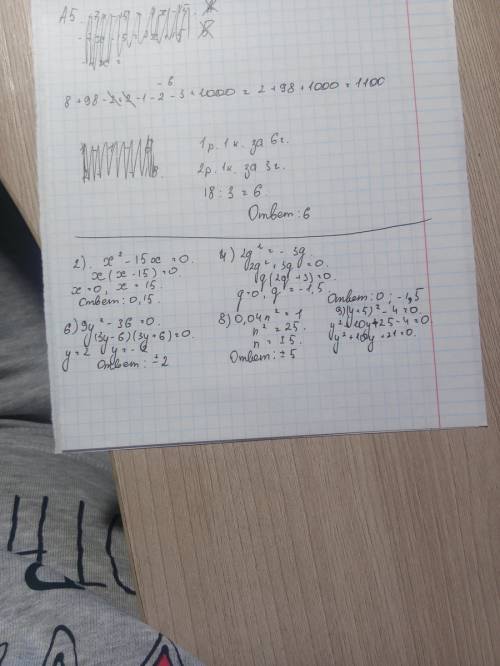 А5
-6
8 + 98 - 2 + 2 - 1 - 2 - 3 + 1000 = 2 + 98 + 1000 = 1100
1р. 1к. за 6г.
2р. 1к. за 3г.
18 : 3 = 6
Ответ: 6
2) x² - 15x = 0.
x(x - 15) = 0
x = 0, x = 15
Ответ: 0, 15.
4) 2q² = - 3q
2q² + 3q = 0
q(2q + 3) = 0
q = 0, q = -1,5.
Ответ: 0; -1,5
6) 9y² - 36 = 0.
(3y - 6)(3y + 6) = 0.
y = 2 y = -2
Ответ: ± 2
8) 0,04n² = 1
n² = 25
n = ±5.
Ответ: ± 5
9) (y + 5)² - 4 = 0.
y² + 10y + 25 - 4 = 0
y² + 10y + 21 = 0.